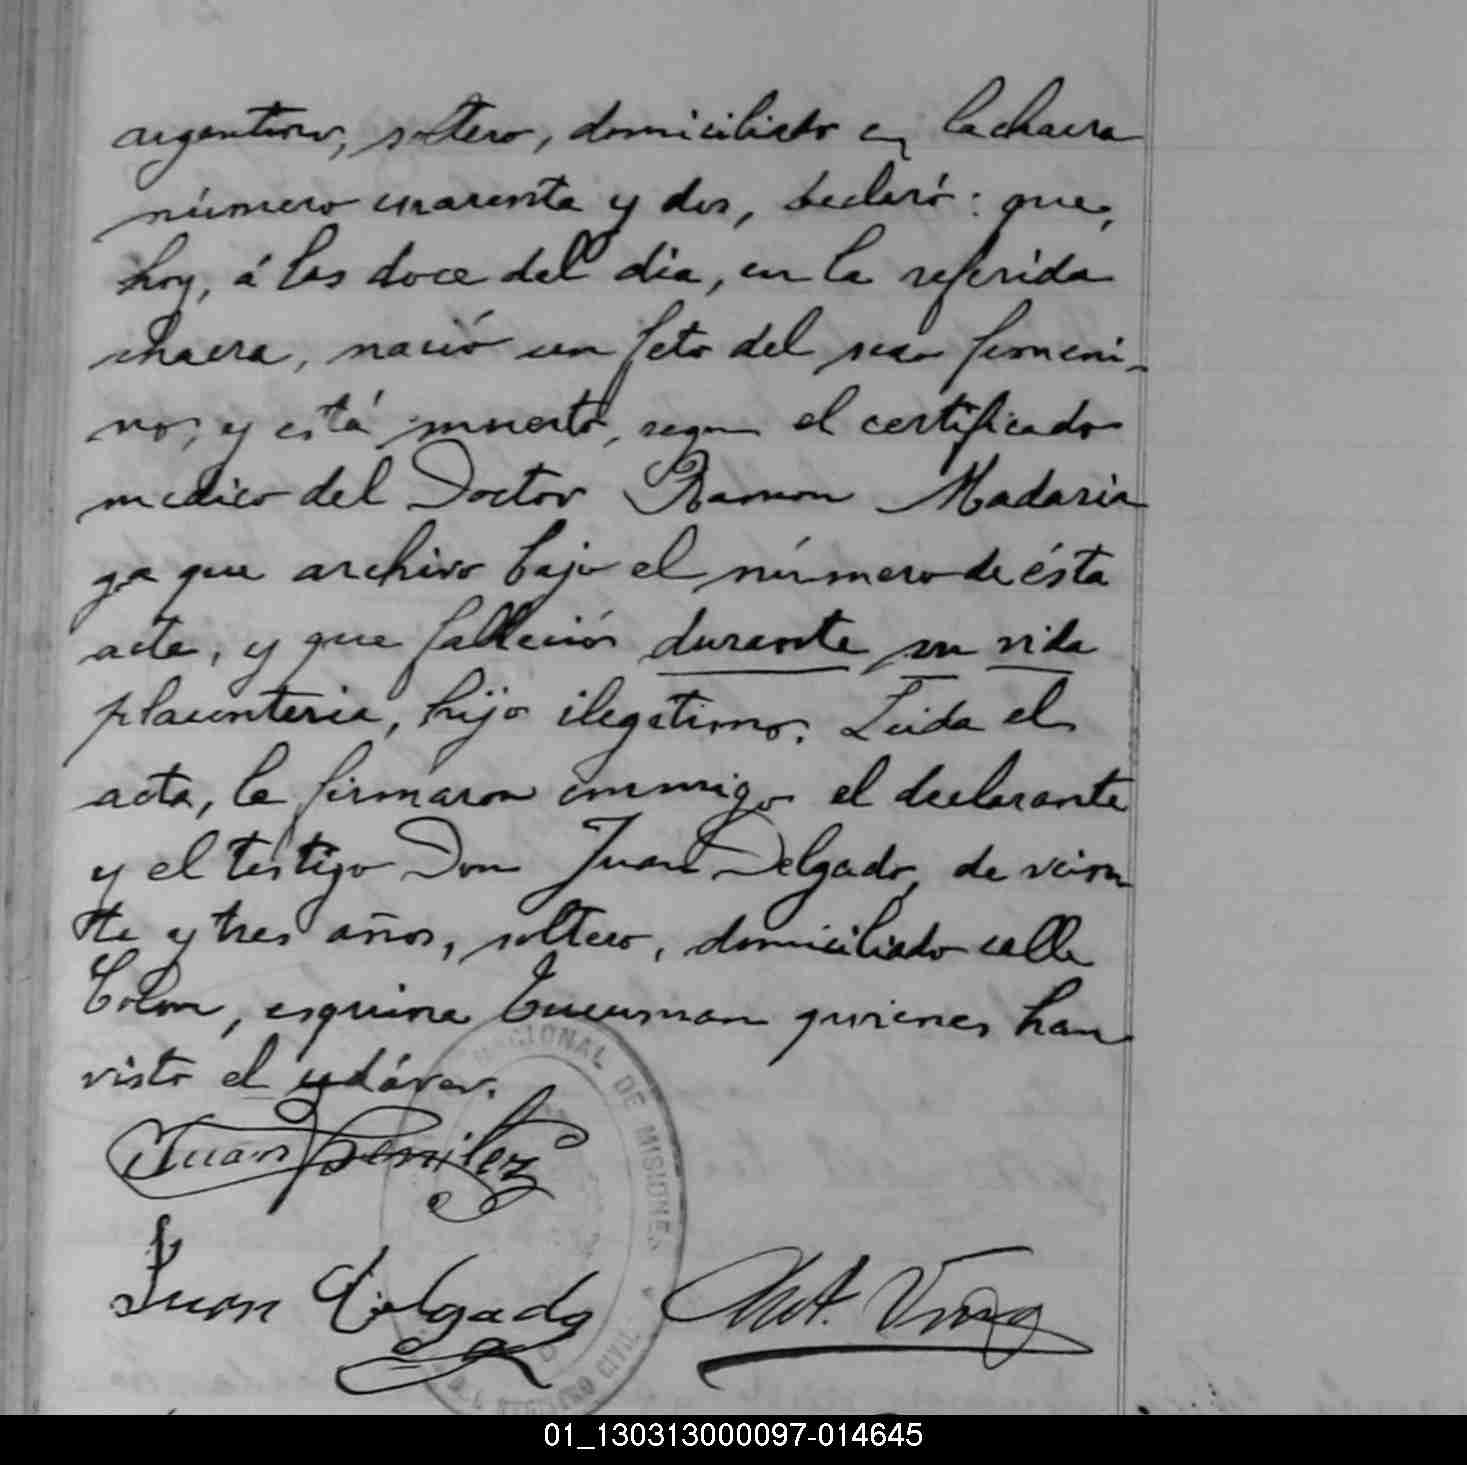 argentino, soltero, domiciliado en la chacra
número cuarenta y dos, declaró: que,
hoy, á las doce del dia, en la referida
chacra, nació un feto del sexo femeni-
no; y está muerto, segun el certificado
medico del Doctor Ramon Madaria
ga que archivo bajo el número de ésta
acta, y que falleció durante su vida
placenteria, hijo ilegetimo. Leida el
acta, la firmaron conmigo el declarante
y el testigo Don Juan Delgado, de vein
te y tres años, soltero, domiciliado calle
Colon, esquina Tucuman quienes han
visto el cadáver.
Juan Benitez
Juan Delgado
NACIONAL DE MISIONES
DEL REGISTRO CIVIL
01_130313000097-014645